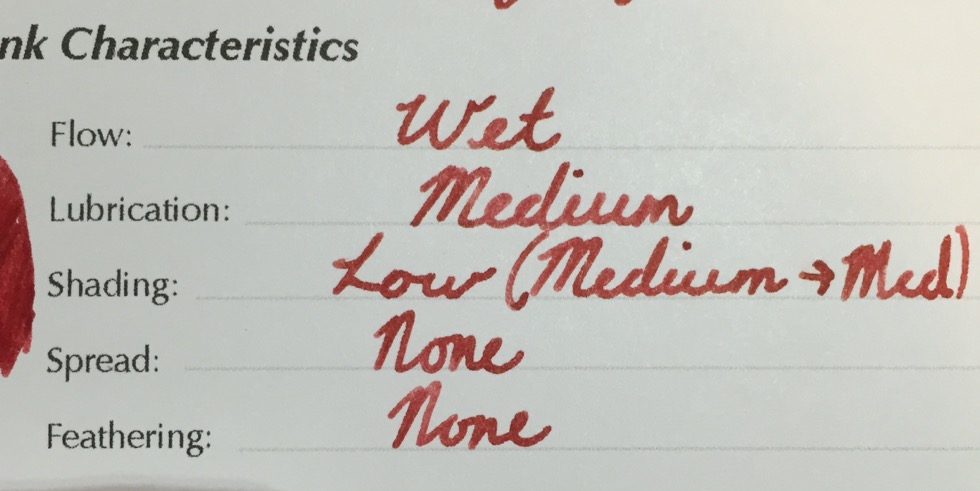 nk Characteristics
Flow: Wet
Lubrication: Medium
Shading: Low (Medium → Med)
Spread: None
Feathering: None